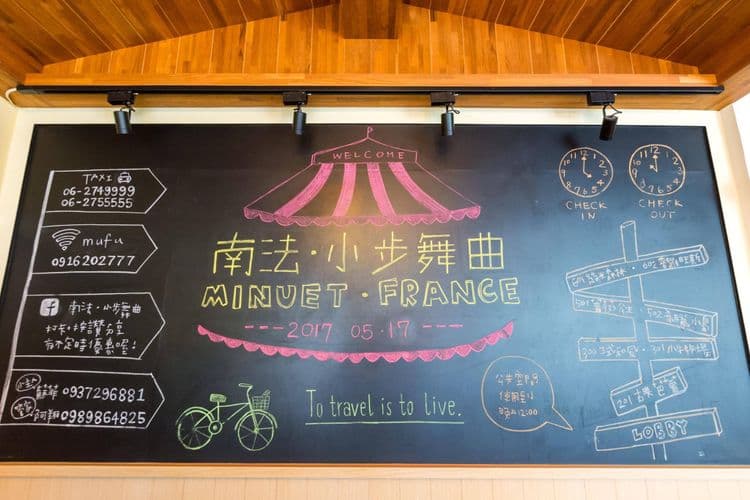 TAXI
06-2749999
06-2755555
mufu
0916202777
f 南法·小步舞曲
打卡·按讚分享
有不定時優惠喔!
0937296881
阿翔 0989864825
WELCOME
南法·小步舞曲
MINUET·FRANCE
--- 2017 05.17 ---
To travel is to live.
公共空間
使用至
晚上12:00
CHECK
IN
CHECK
OUT
LOBBY